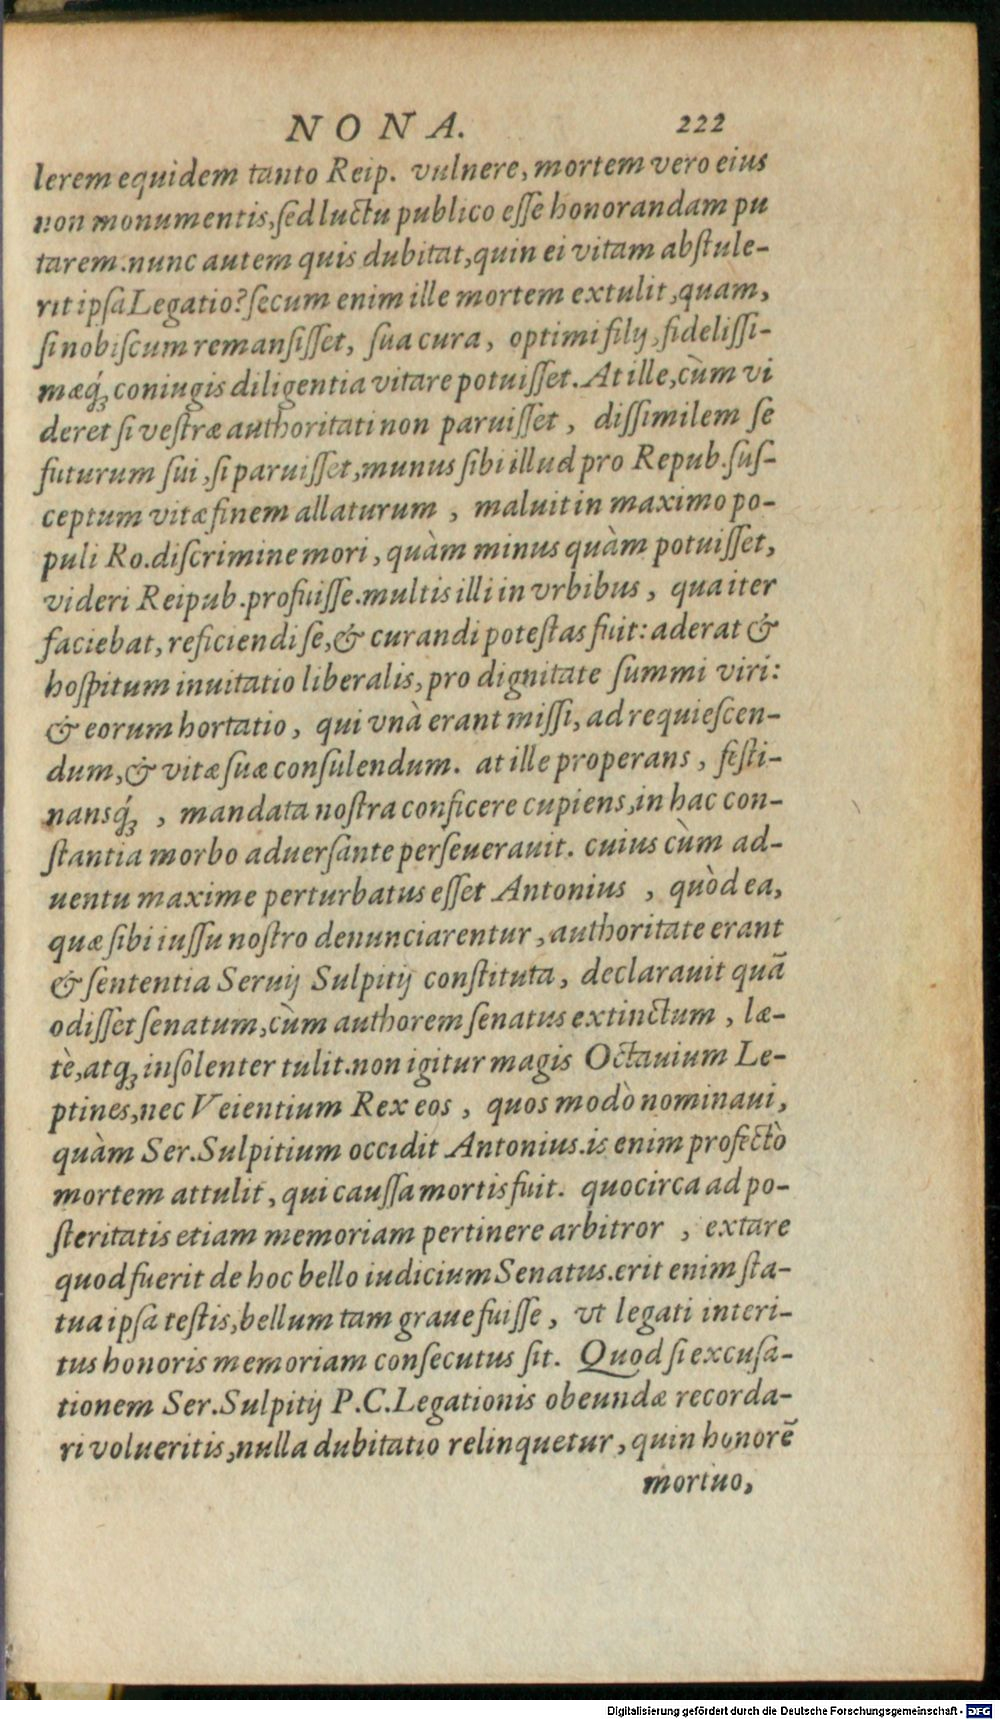 NONA. 222
lerem equidem tanto Reip. vulnere, mortem vero eius
non monumentis, sed luctu publico esse honorandam pu
tarem. nunc autem quis dubitat, quin ei vitam abstule-
rit ipsa Legatio? secum enim ille mortem extulit, quam,
si nobiscum remansisset, sua cura, optimi filij, fidelissi-
mæq́; coniugis diligentia vitare potuisset. At ille, cùm vi
deret si vestræ authoritati non paruisset, dissimilem se
futurum sui, si paruisset, munus sibi illud pro Repub. sus-
ceptum vitæ finem allaturum, maluit in maximo po-
puli Ro. discrimine mori, quàm minus quàm potuisset,
videri Reipub. profuisse. multis illi in vrbibus, qua iter
faciebat, reficiendi se, & curandi potestas fuit: aderat &
hospitum inuitatio liberalis, pro dignitate summi viri:
& eorum hortatio, qui vnà erant missi, ad requiescen-
dum, & vitæ suæ consulendum. at ille properans, festi-
nansq́;, mandata nostra conficere cupiens, in hac con-
stantia morbo aduersante perseuerauit. cuius cùm ad-
uentu maxime perturbatus esset Antonius, quòd ea,
quæ sibi iussu nostro denunciarentur, authoritate erant
& sententia Seruij Sulpitij constituta, declarauit quã
odisset senatum, cùm authorem senatus extinctum, læ-
tè, atq; insolenter tulit. non igitur magis Octauium Le-
ptines, nec Veientium Rex eos, quos modò nominaui,
quàm Ser. Sulpitium occidit Antonius. is enim profectò
mortem attulit, qui caussa mortis fuit. quocirca ad po-
steritatis etiam memoriam pertinere arbitror, extare
quod fuerit de hoc bello iudicium Senatus. erit enim sta-
tua ipsa testis, bellum tam graue fuisse, vt legati interi-
tus honoris memoriam consecutus sit. Quod si excusa-
tionem Ser. Sulpitij P.C. Legationis obeundæ recorda-
ri volueritis, nulla dubitatio relinquetur, quin honorẽ
mortuo,
Digitalisierung gefördert durch die Deutsche Forschungsgemeinschaft - DFG